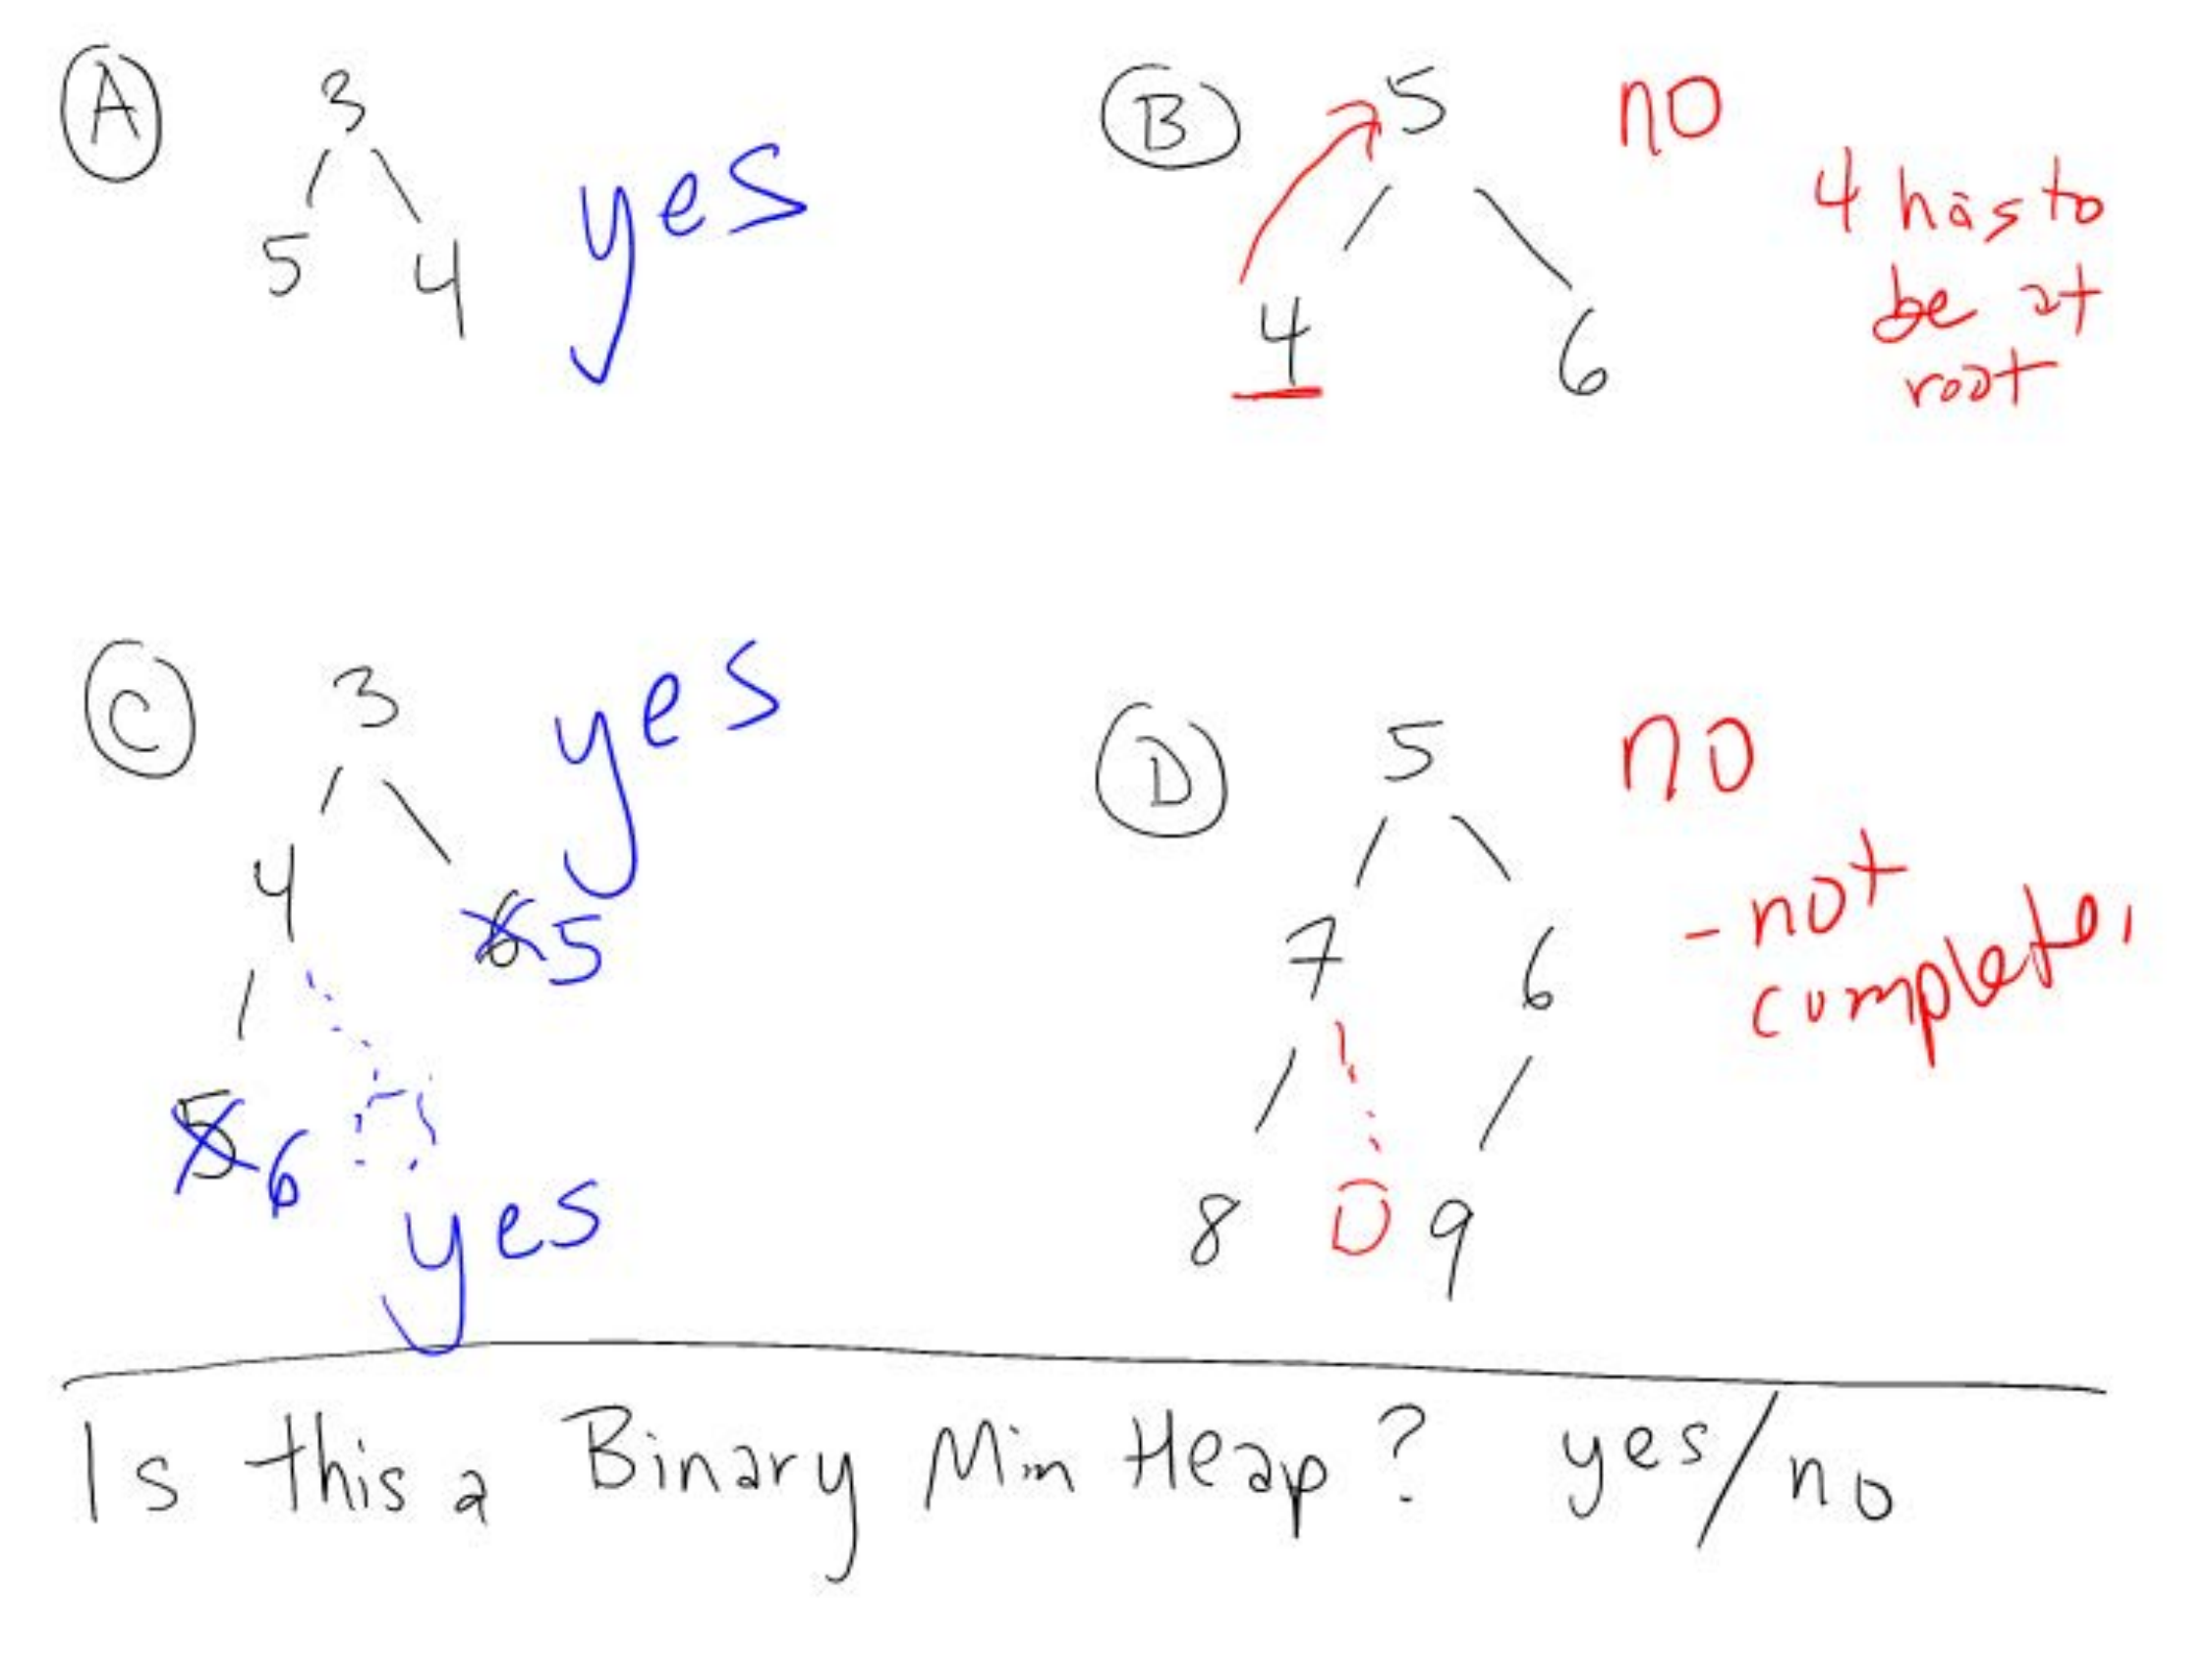 A
3
5 4
yes
B
5
4 6
no
4 has to
be at
root
C
3
4 6 5
5 6
yes
yes
D
5
7 6
8 9
no
- not
complete.
Is this a Binary Min Heap? yes/no